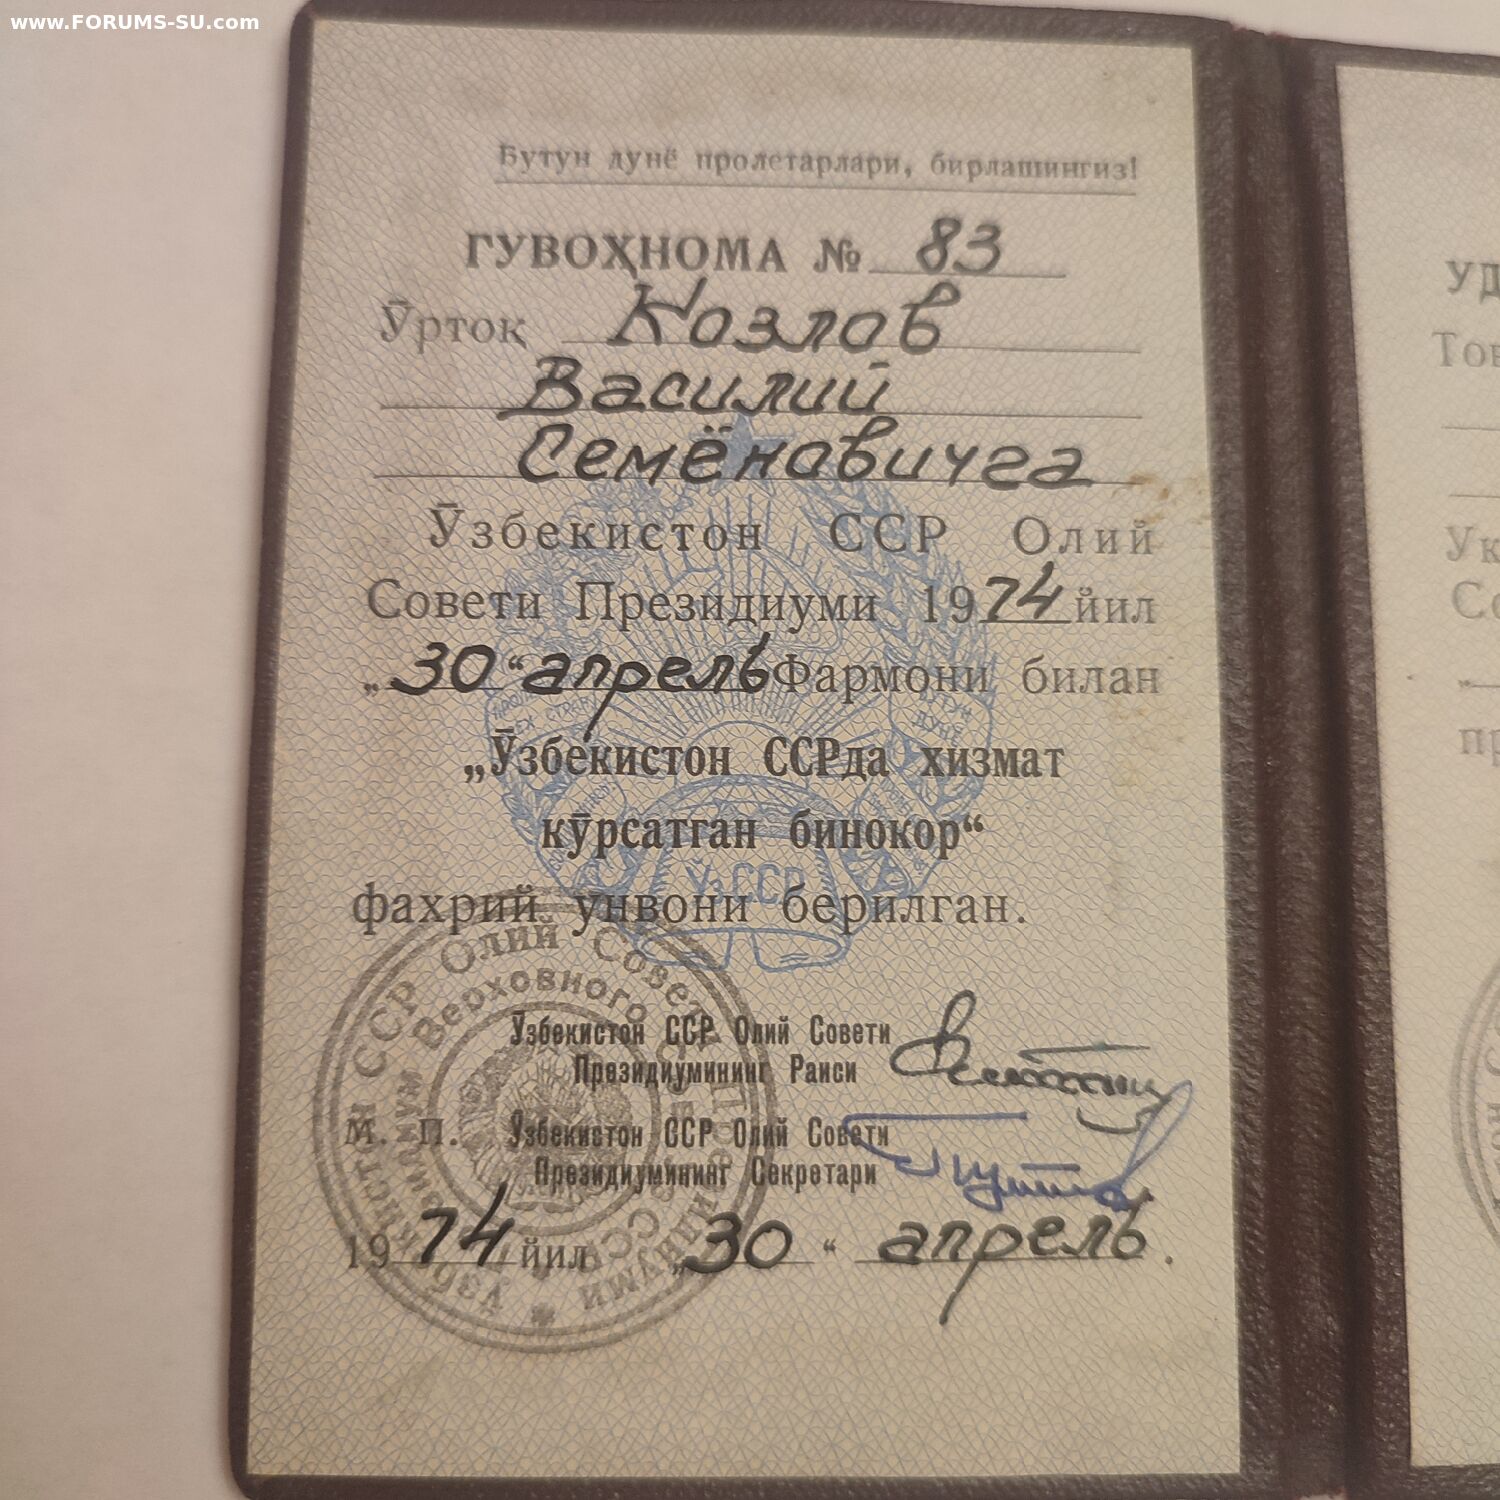 www.FORUMS-SU.com
Бутун дунё пролетарлари, бирлашингиз!
ГУВОҲНОМА № 83
Ўртоқ Козлов
Василий
Семёновичга
Ўзбекистон ССР Олий
Совети Президиуми 1974 йил
„30“ апрель Фармони билан
„Ўзбекистон ССРда хизмат
кўрсатган бинокор“
фахрий унвони берилган.
Ўзбекистон ССР Олий Совети
Президиумининг Раиси
М. П. Ўзбекистон ССР Олий Совети
Президиумининг Секретари
1974 йил „30“ апрель.
ЎзССР
Ўзбекистон ССР Олий Совети Президиуми
Президиум Верховного
УД
Тов
Ук
Со
пр